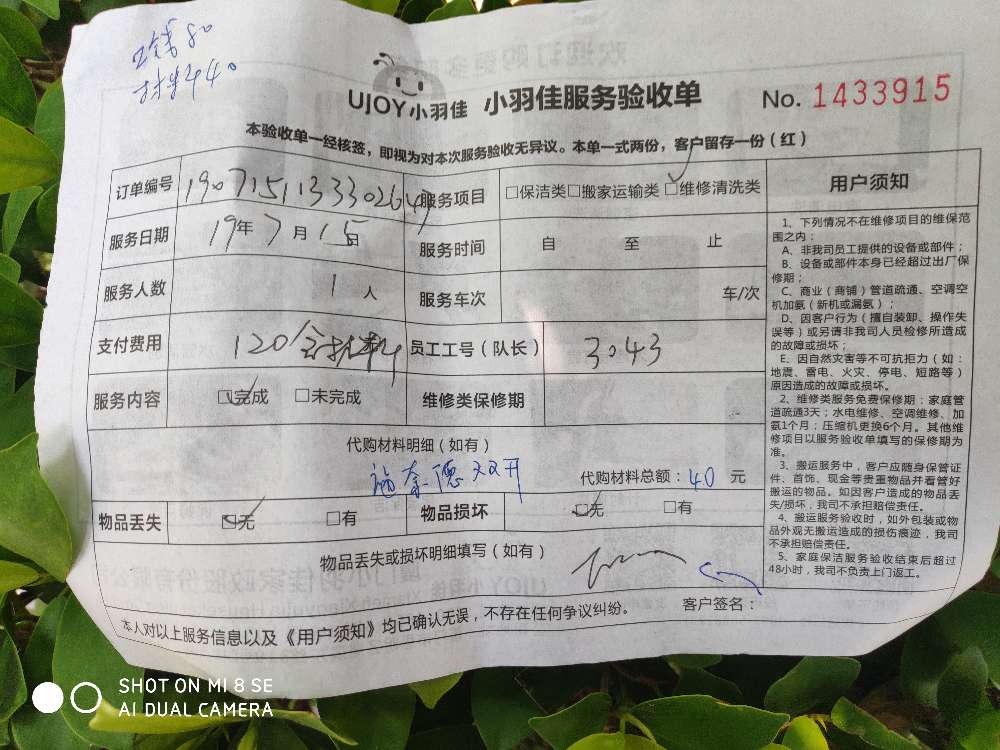 工钱80
材料40
UJOY小羽佳 小羽佳服务验收单 No. 1433915
本验收单一经核签，即视为对本次服务验收无异议。本单一式两份，客户留存一份（红）
订单编号 服务项目 □保洁类□搬家运输类□维修清洗类
服务日期 19年7月15日 服务时间 自 至 止
服务人数 1人 服务车次 车/次
支付费用 120含材料 员工工号（队长） 3043
服务内容 □完成 □未完成 维修类保修期
代购材料明细（如有）
双开 代购材料总额：40元
物品丢失 □无 □有 物品损坏 □无 □有
物品丢失或损坏明细填写（如有）
客户签名：
本人对以上服务信息以及《用户须知》均已确认无误，不存在任何争议纠纷。
用户须知
1、下列情况不在维修项目的维保范
围之内；
A、非我司员工提供的设备或部件；
B、设备或部件本身已经超过出厂保
修期；
C、商业（商铺）管道疏通、空调空
机加氨（新机或漏氨）；
D、因客户行为（擅自装卸、操作失
误等）或另请非我司人员检修所造成
的故障或损坏；
E、因自然灾害等不可抗拒力（如：
地震、雷电、火灾、停电、短路等）
原因造成的故障或损坏。
2、维修类服务免费保修期：家庭管
道疏通3天；水电维修、空调维修、加
氨1个月；压缩机更换6个月。其他维
修项目以服务验收单填写的保修期为
准。
3、搬运服务中，客户应随身保管证
件、首饰、现金等贵重物品并看管好
搬运的物品。如因客户造成的物品丢
失/损坏，我司不承担赔偿责任。
4、搬运服务验收时，如外包装或物
品外观无搬运造成的损伤痕迹，我司
不承担赔偿责任。
5、家庭保洁服务验收结束后超过
48小时，我司不负责上门返工。
SHOT ON MI 8 SE
AI DUAL CAMERA